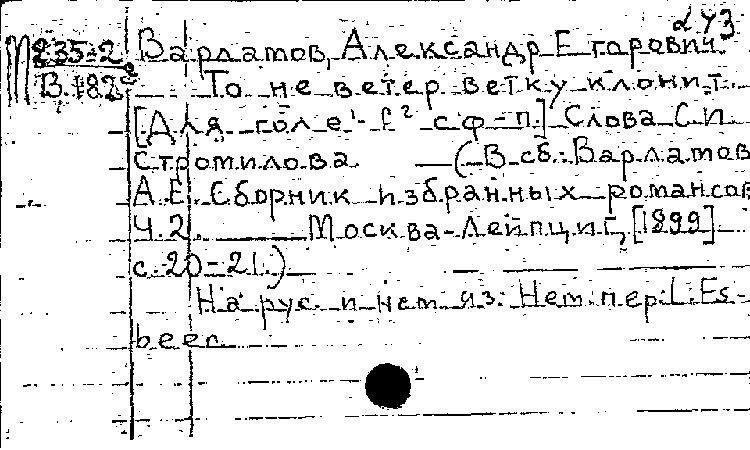 243
М 235-2 Варламов, Александр Егорович.
В 182 То не ветер ветку клонит.
[Для голе f² с ф-п.] Слова С.И.
Стромилова (В сб.: Варламов
А.Е. Сборник избранных романсов
Ч.2. Москва-Лейпциг, [1899]
с. 20-21.)
На рус. и нем. яз. Нем. пер. L. Es-
beer.